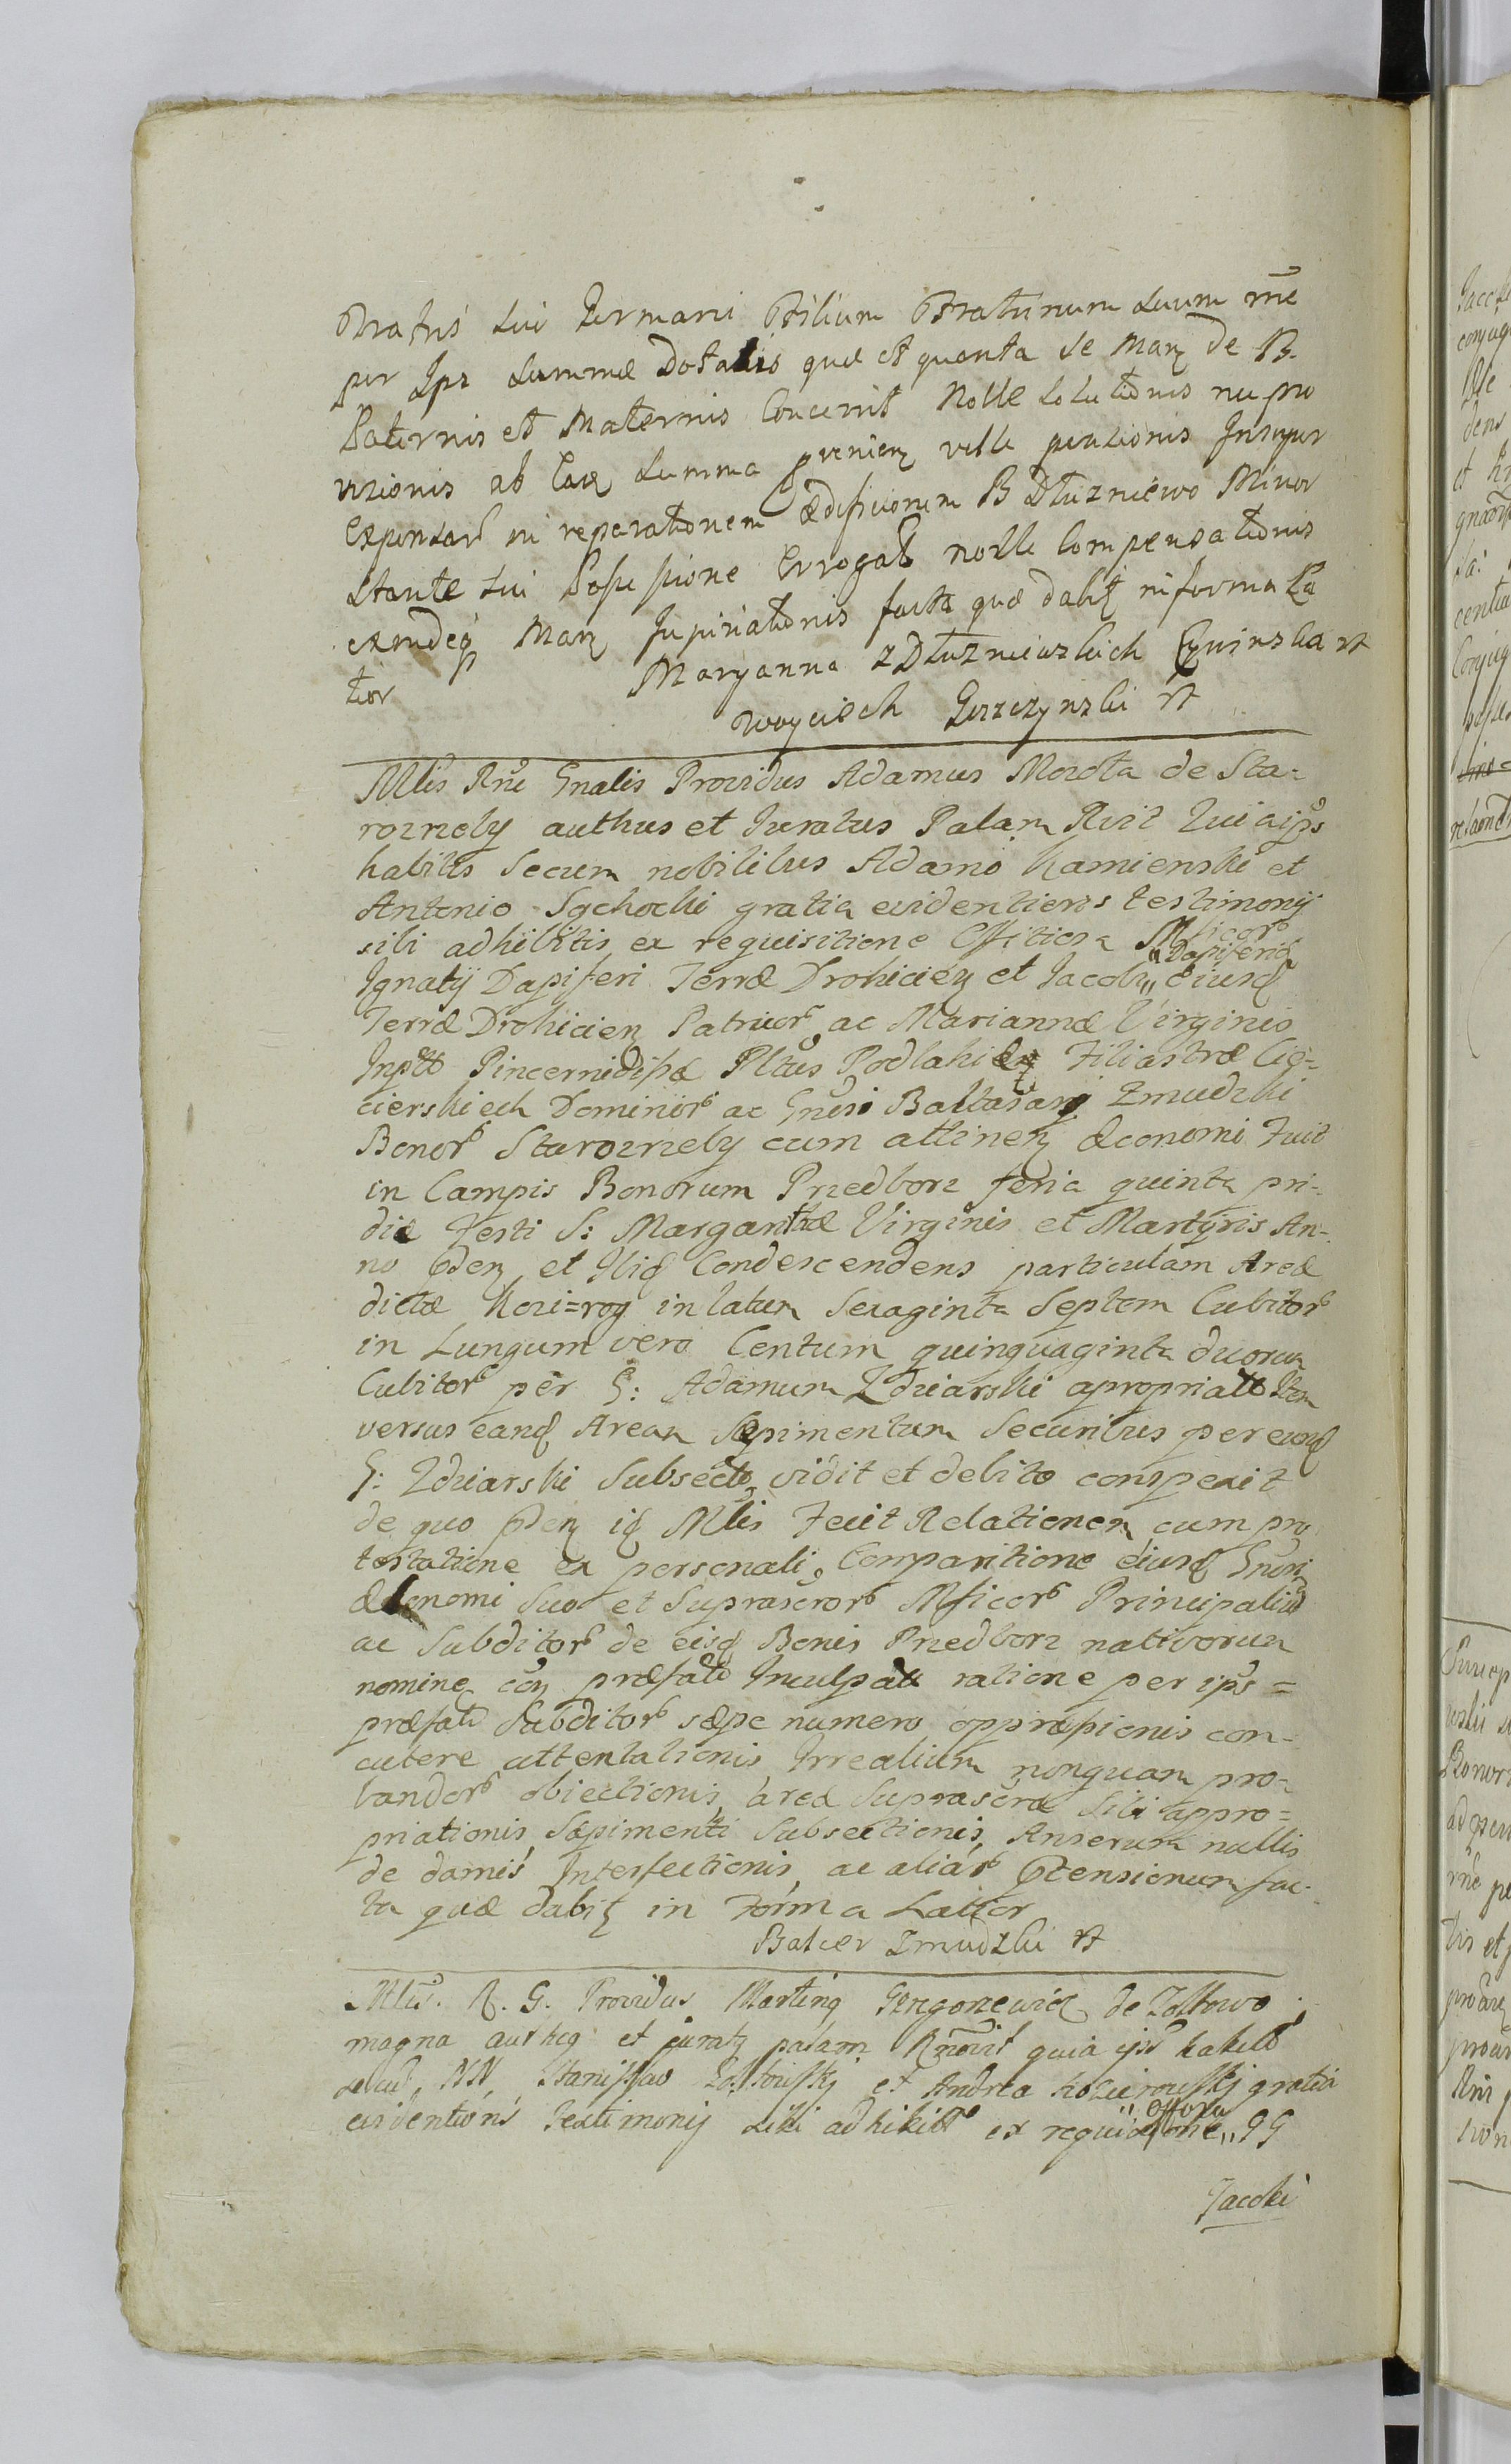 Fratris sui Germani Filium Fratrinum suum rne
per Ips summæ Dotalis quæ et quanta se Marz de B
Paternis et Maternis Concernit Nolle Solutionis nu pro
visionis ab Eadz summa provenienz velle pensionis Insuper
Expensarb in reparationem ædificiorum B Dłuzniewo Minor
stante sui Possessione Errogatb nolle Compensationis
exrndeq Marz Injuriationis facta quæ dabitz in forma La
tior
Maryanna z Dłuzniewskich Czwinska rt
Woyciech Gorzzynski rt
Mlis Rni Gnalis Providus Adamus Mordta de Sta-
roznieby authus et Juratus Palam Rvit Quia ips
habitis Secum nobilibus Adamo Kamienski et
Antonio Sochocki gratia evidentioris testimonij
sibi adhibitis ex requisitione Offitiosa Mficorb
Ignatij Dapiferi Terræ Drohicienz et Jacobi „Dapiferid„ eiusd
Terræ Drohicienz Patruorb ac Mariannæ Virginis
Inptb Pincernidissæ Pltus Podlahienz Filiastræ Cie-
cierskiech Dominorb ac Gnesi Baltasari Zmudzki
Bonorb Starozrieby cum attinenz Œconomi Fuit
in Campis Bonorum Przedborz feria quinta pri-
die Festi S: Margarithæ Virginis et Martyris An-
no Pdenz et Ibid Condescendens particulam Areæ
dictæ Kozi=rog in latum Sexaginta Septem Cubitorb
in Lungum vero Centum quinquaginta duorum
Cubitorb per G: Adamum Zdziarski apropriattb Item
versus eand Aream Sæpimentum Securibus per eund
G: Zdziarski Subsectb vidit et debito conspexit
de quo Pdenz id Mlis Fecit Relationem cum pro
testatione ex personali Comparitione eiusd Gnosi
Œconomi Suo et Suprascrorb Mficorb Principaliu
ac Subditorb de eisd Bonis Przedborz nativorum
nomine conz præfatb Inculpatb ratione per ips =
præfatb Subditorb sæpe numero oppressionis con-
cutere attentationis Irrealium nonquam pro-
bandorb obiectionis, areæ Suprascræ Sibi appro=
priationis, Sæpimenti Subsectionis, Anserum nullis
de damis Interfectionis, ac aliarb Ptensionum fac-
ta quæ dabitz in Forma Lattior
Balcer Zmudzki rt
Mlis. R. G. Providus Martinq Grzgorzewicz de Zołtowo
magna authcq et juratq palam Rnovit quia ips habitb
secu NN Stanislao Zołtowskj et Andrea Kozierowskj gratia
evidentioris Testimonij sibi adhibitb ex requisitione „offosa„ GG
Jacobi